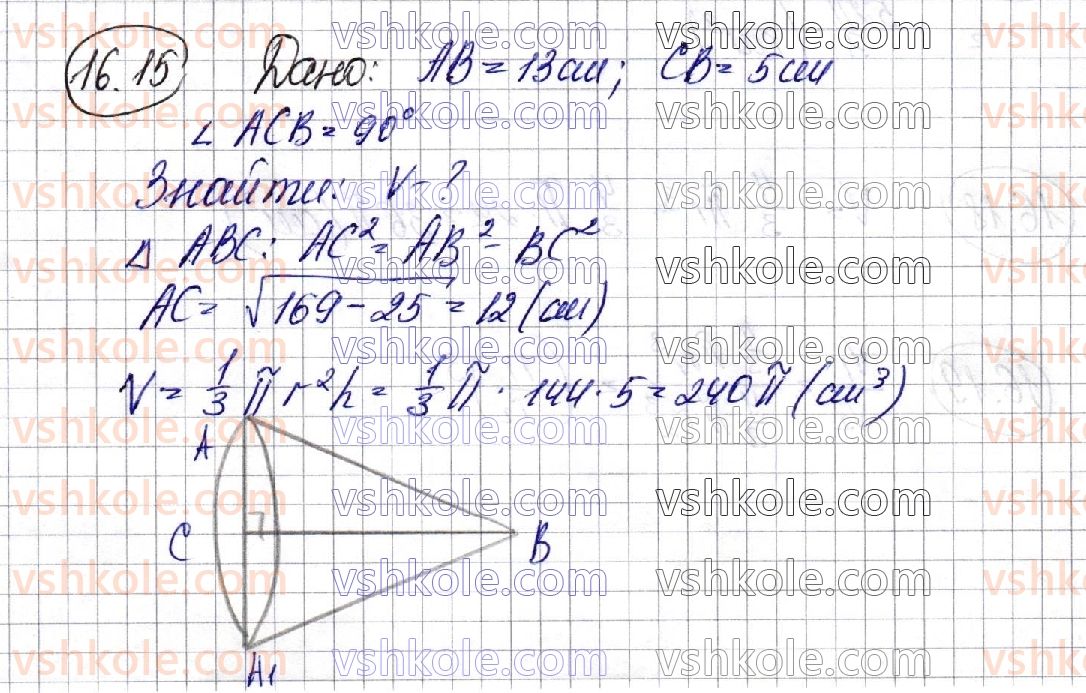 16.15 Дано: AB = 13 см; CB = 5 см
∠ ACB = 90°
Знайти: V - ?
Δ ABC: AC² = AB² - BC²
AC = √169 - 25 = 12 (см)
V = 1/3 π r² h = 1/3 π · 144 · 5 = 240 π (см³)
A
C
B
A1
vshkole.com